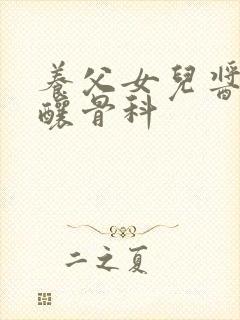 養父女兒醬
釀骨科
二之夏